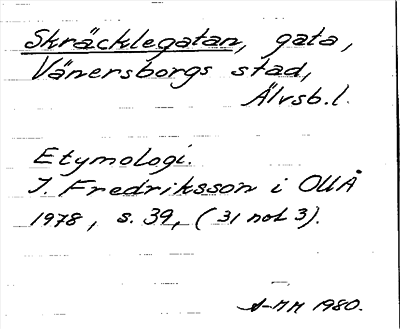 Skräcklegatan, gata,
Vänersborgs stad,
Älvsb.l.
Etymologi.
I. Fredriksson i OUÅ
1978, s. 39, (31 not 3).
A-MM 1980.